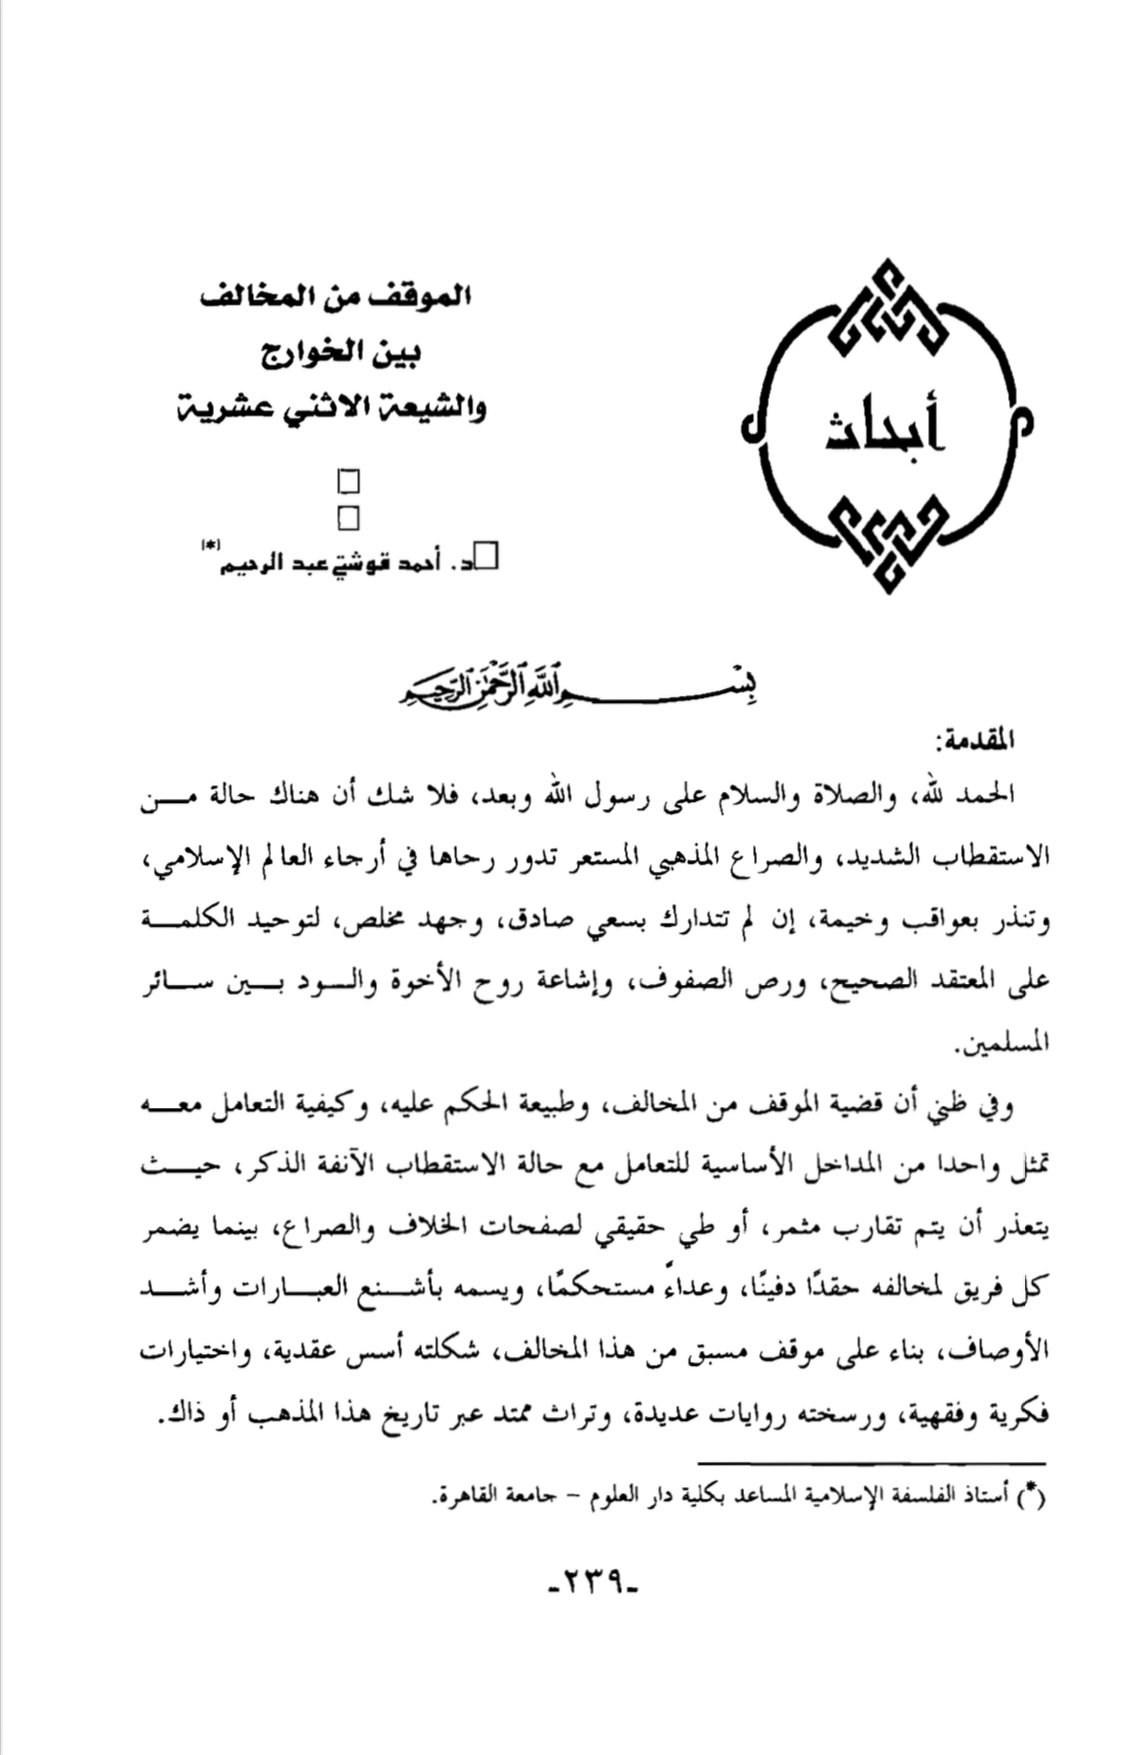 أبحاث
الموقف من المخالف
بين الخوارج
والشيعة الاثني عشرية
د. أحمد قوشتي عبد الرحيم(*)
بسم الله الرحمن الرحيم
المقدمة:
الحمد لله، والصلاة والسلام على رسول الله وبعد، فلا شك أن هناك حالة مـــن
الاستقطاب الشديد، والصراع المذهبي المستعر تدور رحاها في أرجاء العالم الإسلامي،
وتنذر بعواقب وخيمة، إن لم تتدارك بسعي صادق، وجهد مخلص، لتوحيد الكلمـــة
على المعتقد الصحيح، ورص الصفوف، وإشاعة روح الأخوة والـــود بـــين ســـائر
المسلمين.
وفي ظني أن قضية الموقف من المخالف، وطبيعة الحكم عليه، وكيفية التعامل معـــه
تمثل واحدا من المداخل الأساسية للتعامل مع حالة الاستقطاب الآنفة الذكر، حيـــث
يتعذر أن يتم تقارب مثمر، أو طي حقيقي لصفحات الخلاف والصراع، بينما يضمر
كل فريق لمخالفه حقدًا دفينًا، وعداءً مستحكمًا، ويسمه بأشـــنع العبـــارات وأشـــد
الأوصاف، بناء على موقف مسبق من هذا المخالف، شكلته أسس عقدية، واختيارات
فكرية وفقهية، ورسخته روايات عديدة، وتراث ممتد عبر تاريخ هذا المذهب أو ذاك.
(*) أستاذ الفلسفة الإسلامية المساعد بكلية دار العلوم – جامعة القاهرة.
-٢٣٩-